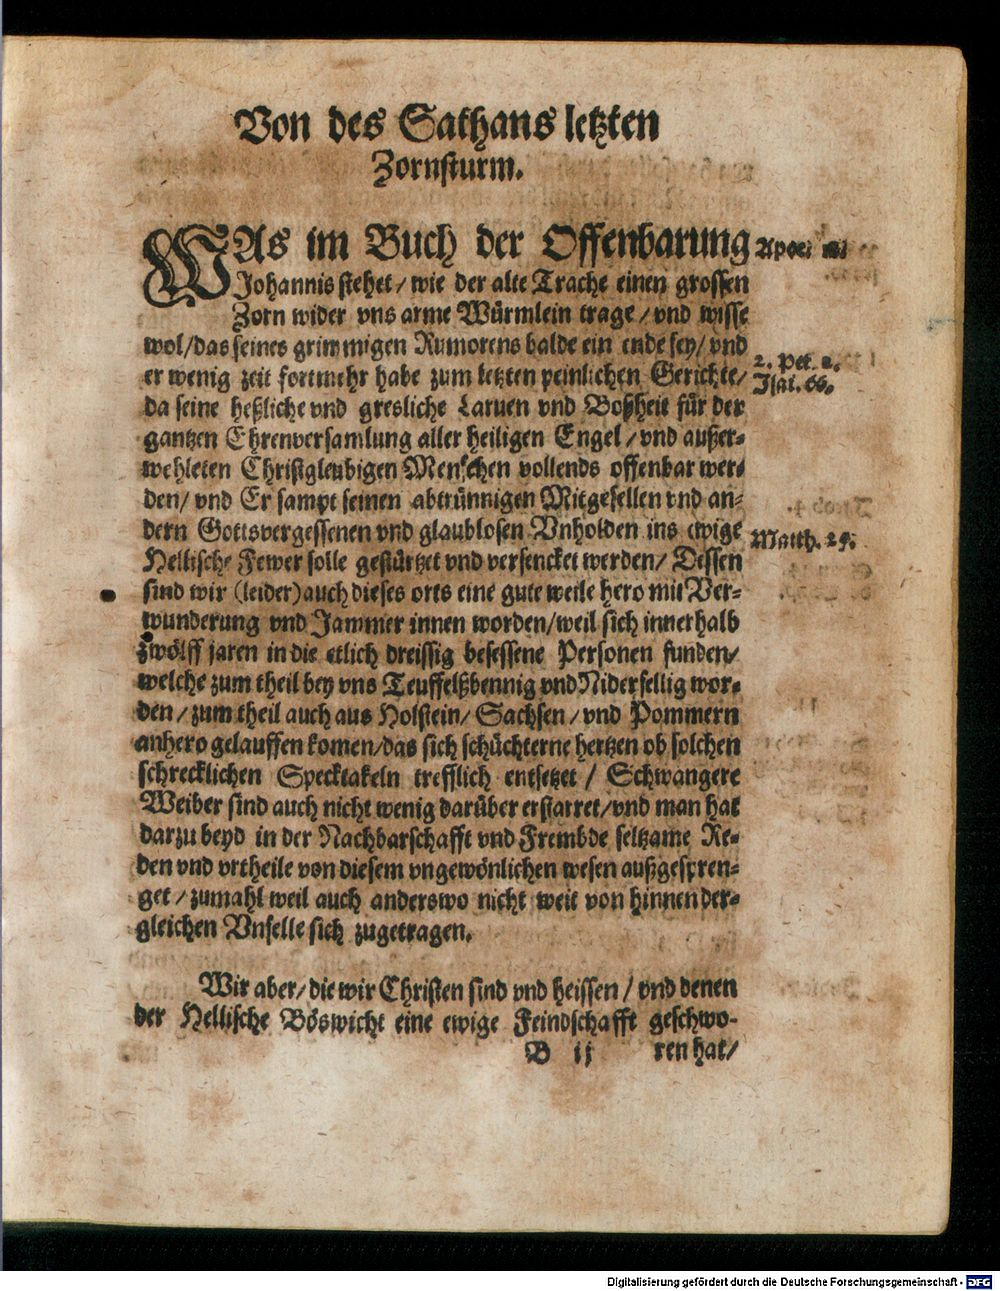 Von des Sathans letzten
Zornsturm.
WAs im Buch der Offenbarung
Johannis stehet/ wie der alte Trache einen grossen
Zorn wider vns arme Würmlein trage/ vnd wisse
wol/ das seines grimmigen Rumorens balde ein ende sey/ vnd
er wenig zeit fortmehr habe zum letzten peinlichen Gerichte/
da seine heßliche vnd gresliche Laruen vnd Boßheit für der
gantzen Ehrenversamlung aller heiligen Engel/ vnd außer-
wehleten Christgleubigen Menschen vollends offenbar wer-
den/ vnd Er sampt seinen abtrünnigen Mitgesellen vnd an-
dern Gottsvergessenen vnd glaublosen Vnholden ins ewige
Hellische Fewer solle gestürtzet vnd versencket werden/ Dessen
sind wir (leider) auch dieses orts eine gute weile hero mit Ver-
wunderung vnd Jammer innen worden/ weil sich innerhalb
zwölff jaren in die etlich dreissig besessene Personen funden/
welche zum theil bey vns Teuffelßbennig vnd Niderfellig wor-
den/ zum theil auch aus Holstein/ Sachsen/ vnd Pommern
anhero gelauffen komen/ das sich schüchterne hertzen ob solchen
schrecklichen Specktakeln trefflich entsetzet/ Schwangere
Weiber sind auch nicht wenig darüber erstarret/ vnd man hat
darzu beyd in der Nachbarschafft vnd Frembde seltzame Re-
den vnd vrtheile von diesem vngewönlichen wesen außgespren-
get/ zumahl weil auch anderswo nicht weit von hinnen der-
gleichen Vnfelle sich zugetragen.
Wir aber/ die wir Christen sind vnd heissen/ vnd denen
der Hellische Böswicht eine ewige Feindschafft geschwo-
B ij ren hat/
Apoc.
2. Pet. 2.
Jsai. 66.
Matth. 25.
Digitalisierung gefördert durch die Deutsche Forschungsgemeinschaft - DFG